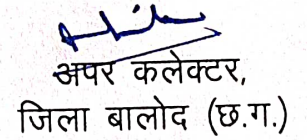 अपर कलेक्टर,
जिला बालोद (छ.ग.)